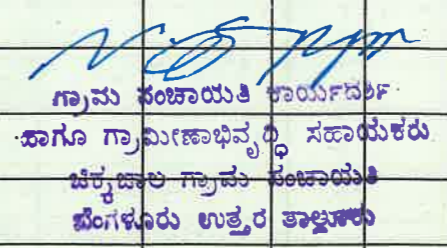 ಗ್ರಾಮ ಪಂಚಾಯತಿ ಕಾರ್ಯದರ್ಶಿ
ಹಾಗೂ ಗ್ರಾಮೀಣಾಭಿವೃದ್ಧಿ ಸಹಾಯಕರು
ಚಿಕ್ಕಜಾಲ ಗ್ರಾಮ ಪಂಚಾಯತಿ
ಬೆಂಗಳೂರು ಉತ್ತರ ತಾಲ್ಲೂಕು